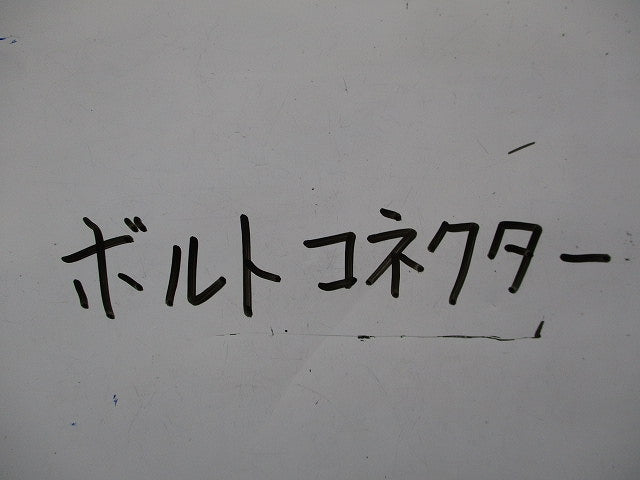 ボルトコネクター